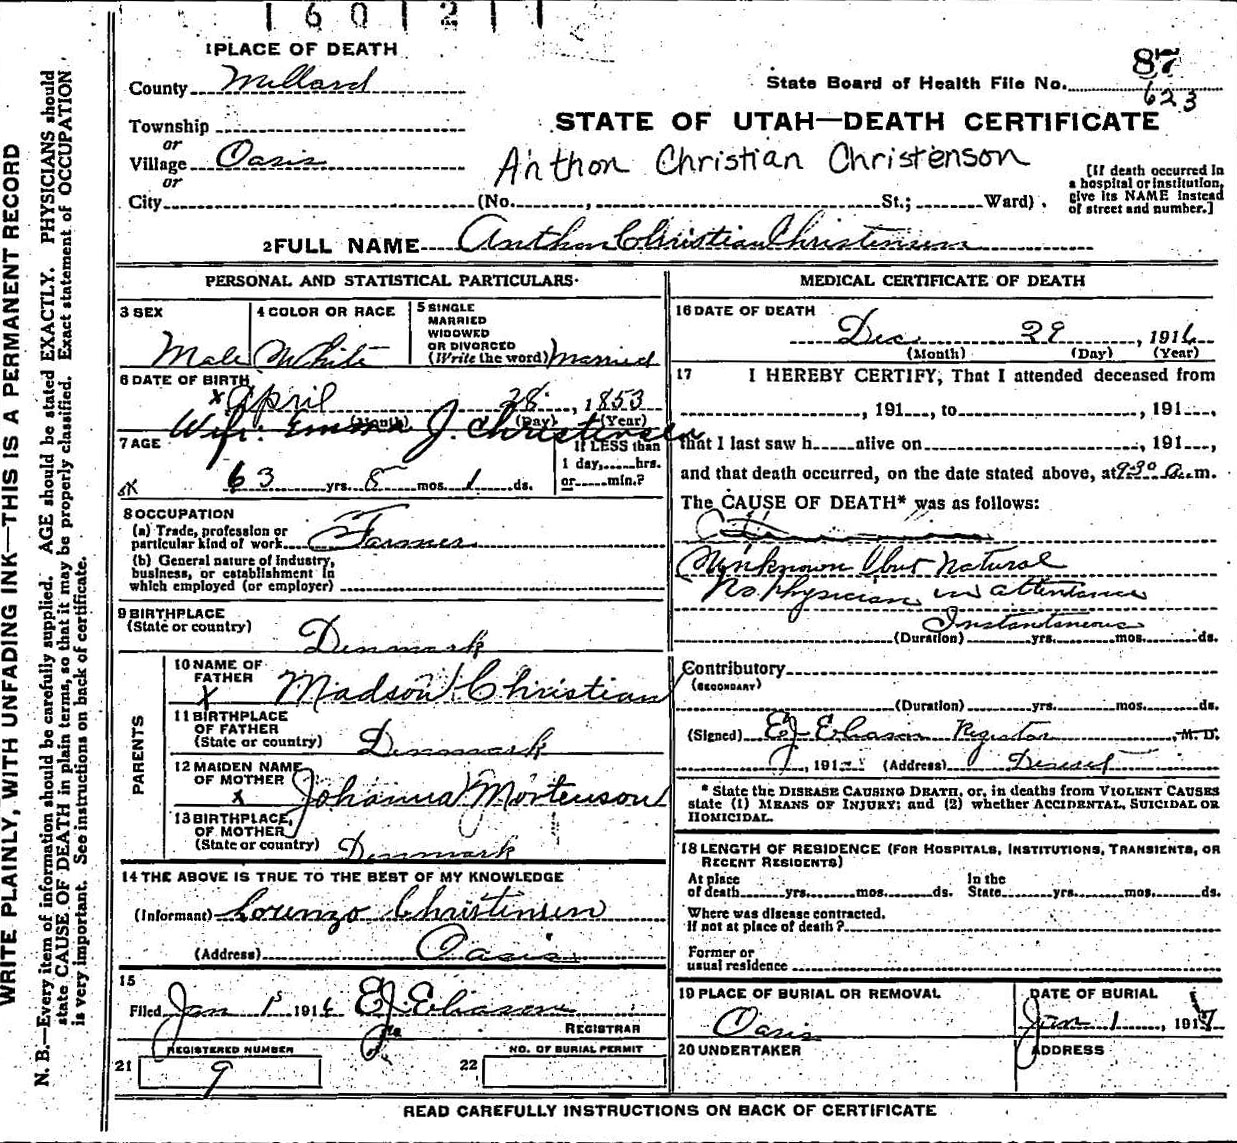 1 6 0 1 2 1 1
1 PLACE OF DEATH
County Millard
Township
or
Village Oasis
or
City
(No. , St.; Ward) .
87
State Board of Health File No.
623
STATE OF UTAH—DEATH CERTIFICATE
Anthon Christian Christenson
[If death occurred in
a hospital or institution,
give its NAME instead
of street and number.]
2 FULL NAME Anthon Christian Christensen
PERSONAL AND STATISTICAL PARTICULARS.
3 SEX
Male
4 COLOR OR RACE
White
5 SINGLE
MARRIED
WIDOWED
OR DIVORCED
(Write the word) Married
6 DATE OF BIRTH
x April 28 , 1853
(Month) (Day) (Year)
Wife. Emma J. Christensen
7 AGE
63 yrs. 8 mos. 1 ds.
If LESS than
1 day, hrs.
or min.?
8 OCCUPATION
(a) Trade, profession or
particular kind of work Farmer
(b) General nature of industry,
business, or establishment in
which employed (or employer)
9 BIRTHPLACE
(State or country)
Denmark
PARENTS
10 NAME OF
FATHER
x Madson Christian
11 BIRTHPLACE
OF FATHER
(State or country) Denmark
12 MAIDEN NAME
OF MOTHER
x Johanna Mortenson
13 BIRTHPLACE
OF MOTHER
(State or country) Denmark
14 THE ABOVE IS TRUE TO THE BEST OF MY KNOWLEDGE
(Informant) Lorenzo Christensen
(Address) Oasis
15
Filed Jan 1st 1916 E.J. Eliason
REGISTRAR
REGISTERED NUMBER
21 9
NO. OF BURIAL PERMIT
22
MEDICAL CERTIFICATE OF DEATH
16 DATE OF DEATH
Dec 29 , 1916
(Month) (Day) (Year)
17 I HEREBY CERTIFY, That I attended deceased from
, 191 , to , 191 ,
that I last saw h alive on , 191 ,
and that death occurred, on the date stated above, at 9-30 a.m.
The CAUSE OF DEATH* was as follows:
Unknown but Natural
No Physician in attentance
Instantaneous
(Duration) yrs. mos. ds.
Contributory
(SECONDARY)
(Duration) yrs. mos. ds.
(Signed) E.J. Eliason Registar , M. D.
, 191 (Address) Deseret
* State the DISEASE CAUSING DEATH, or, in deaths from VIOLENT CAUSES
state (1) MEANS OF INJURY; and (2) whether ACCIDENTAL, SUICIDAL OR
HOMICIDAL.
18 LENGTH OF RESIDENCE (FOR HOSPITALS, INSTITUTIONS, TRANSIENTS, OR
RECENT RESIDENTS)
At place In the
of death yrs. mos. ds. State yrs. mos. ds.
Where was disease contracted,
If not at place of death?
Former or
usual residence
19 PLACE OF BURIAL OR REMOVAL
Oasis
DATE OF BURIAL
Jan 1 , 1917
20 UNDERTAKER
ADDRESS
READ CAREFULLY INSTRUCTIONS ON BACK OF CERTIFICATE
WRITE PLAINLY, WITH UNFADING INK—THIS IS A PERMANENT RECORD
N. B.—Every item of information should be carefully supplied. AGE should be stated EXACTLY. PHYSICIANS should
state CAUSE OF DEATH in plain terms, so that it may be properly classified. Exact statement of OCCUPATION
is very important. See instructions on back of certificate.